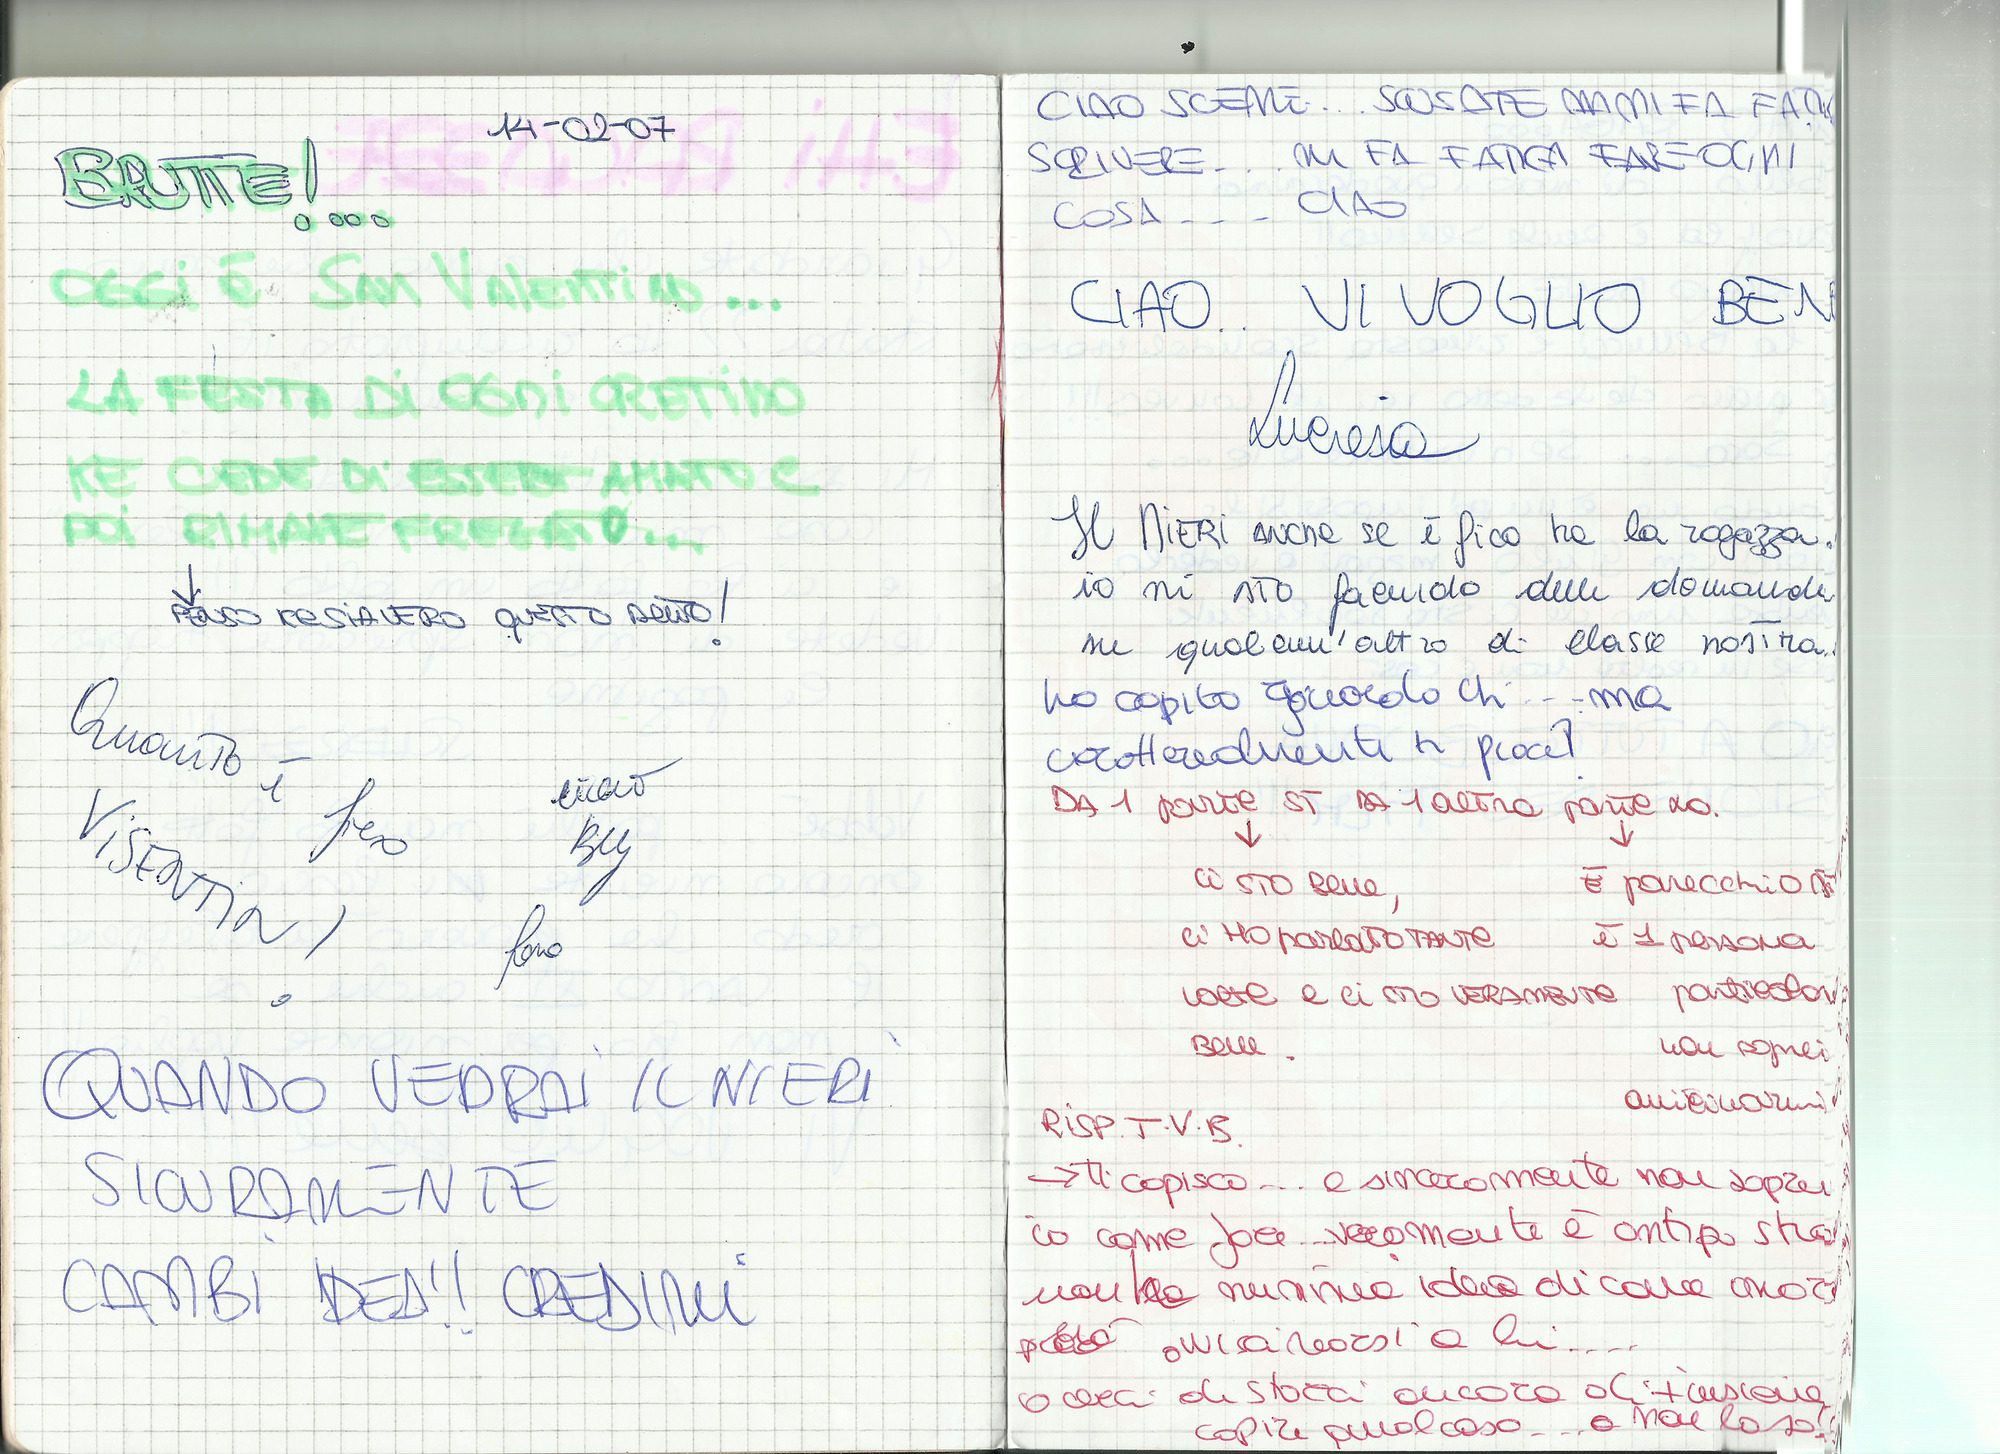 14-02-07
BRUTTE!....
OGGI È SAN VALENTINO...
LA FESTA DI OGNI CRETINO
KE CEDE DI ESSERE AMATO E
POI RIMANE FREGATO...
PENSO KE SIA VERO QUESTO DETTO!
Quanto è
VISENTIN!
QUANDO VEDRAI IL NIERI
SICURAMENTE
CAMBI IDEA!! CREDIMI
CIAO SCEME... SCUSATE MA MI FA
SCRIVERE... MI FA FATICA FARE OGNI
COSA.... CIAO
CIAO.. VI VOGLIO BEN
Lucrezia
Il NIERI ANCHE SE è fico ha la ragazza.
io mi sto facendo delle domande
su qualcun'altro di classe nostra..
ho capito riguardo chi ... ma
caratterialmente ti piace?
DA 1 parte Sì DA 1 altra parte no.
ci sto bene,
ci HO parlato tante
volte e ci sto VERAMENTE
bene.
è parecchio
è 1 persona
particolar
non saprei
avvicinarmi
RISP. T.V.B.
→ ti capisco... e sinceramente non saprei
io come fare... veramente è un tipo
non ho minima idea di come
avvicinarsi a lui.....
o cerchi di starci ancora di +
capire qualcosa.... o non lo so!